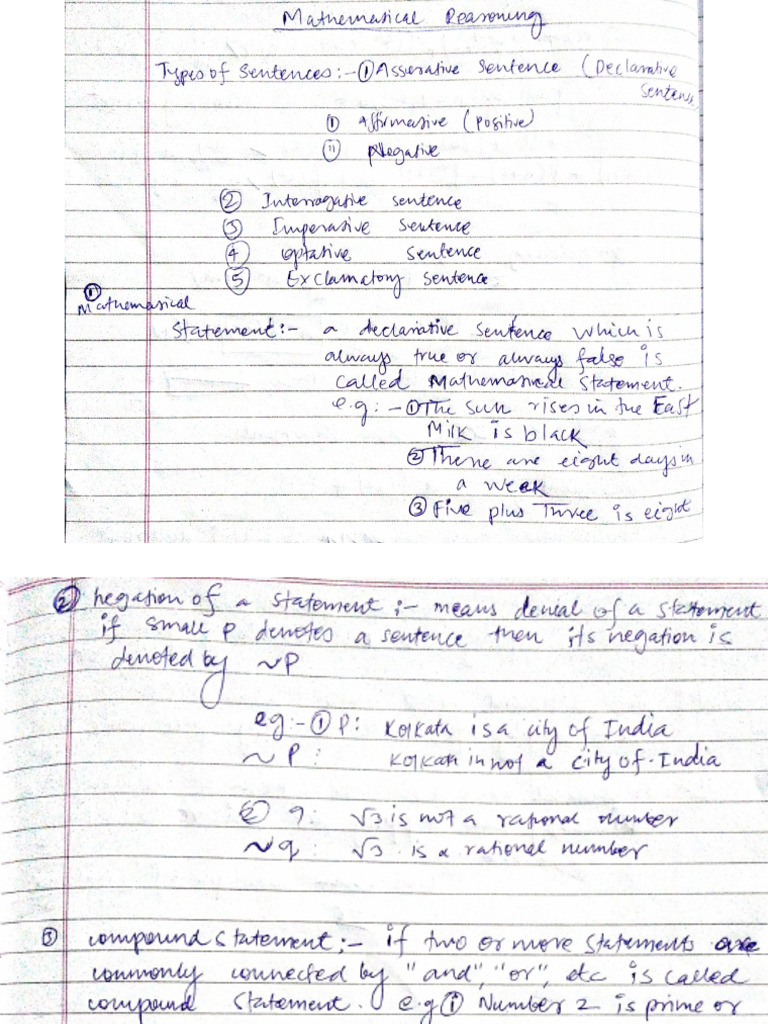 Mathematical Reasoning
Types of Sentences:- ① Asserative Sentence (Declarative
Sentence
① affirmative (positive)
② Negative
② Interrogative sentence
③ Imperative Sentence
④ optative Sentence
⑤ Exclamatory Sentence
①
Mathematical
Statement:- a declarative sentence which is
always true or always false is
called Mathematical Statement.
e.g:- ① The sun rises in the East
Milk is black
② There are eight days in
a week
③ Five plus Three is eight
② negation of a statement :- means denial of a statement
if small p denotes a sentence then its negation is
denoted by ~P
eg:- ① P: Kolkata is a city of India
~P: Kolkata in not a city of India
② q: √3 is not a rational number
~q: √3 is a rational number
③ compound statement:- if two or more statements are
commonly connected by "and", "or", etc is called
compound statement. e.g ① Number 2 is prime or